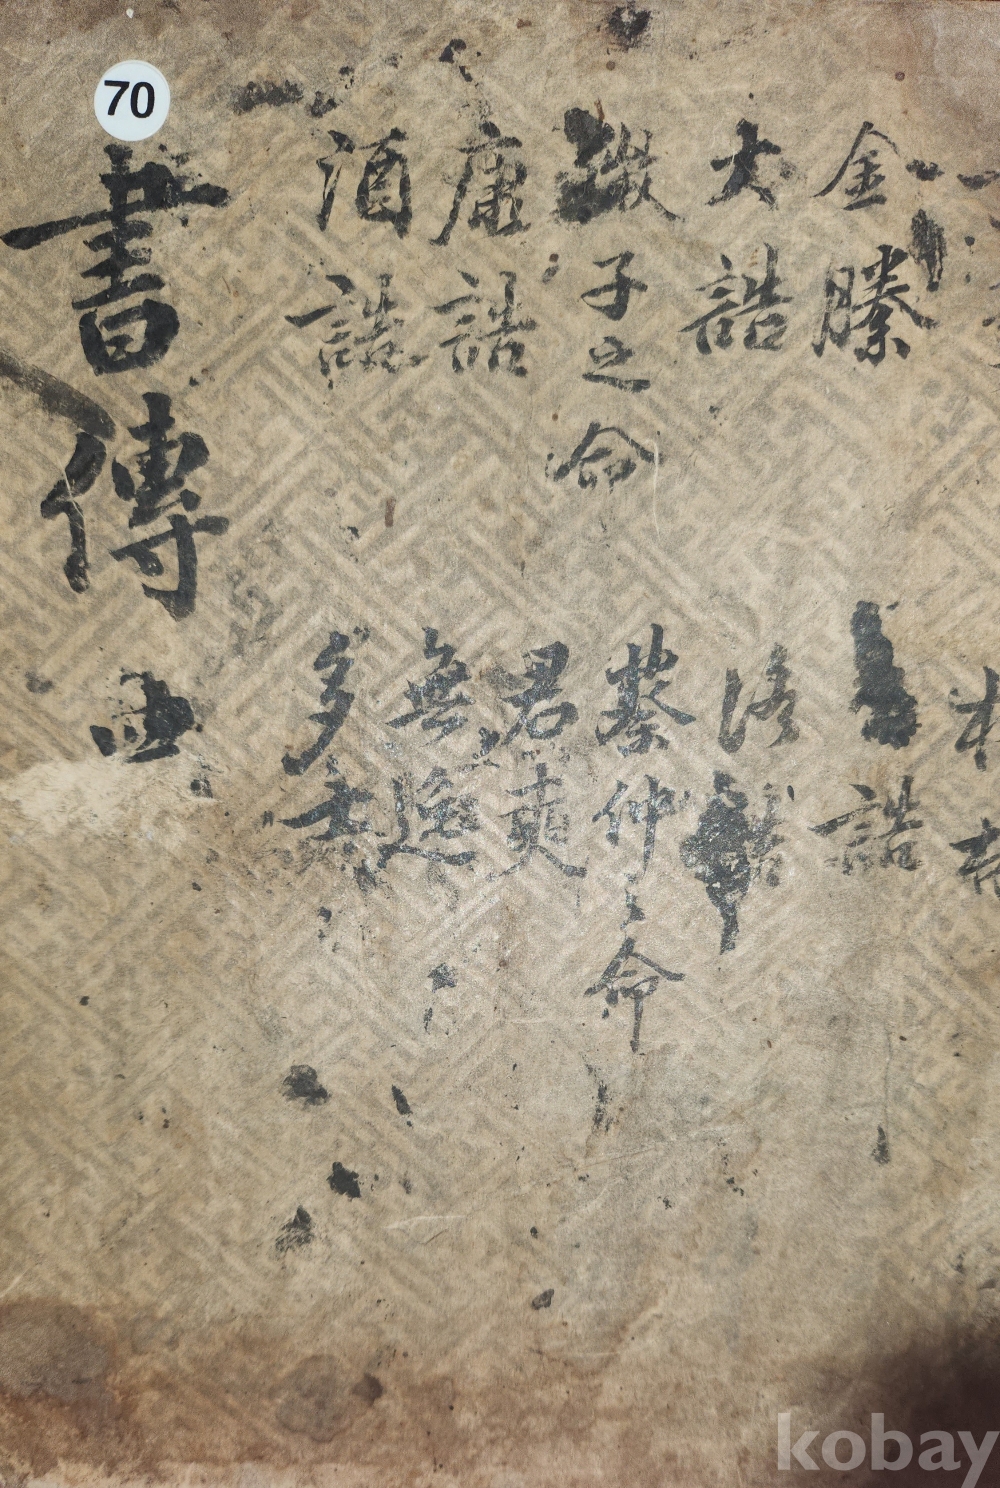 70
書傳
金縢
大誥
微子之命
康誥
酒誥
梓材
誥
洛誥
蔡仲之命
君奭
無逸
多士
kobay